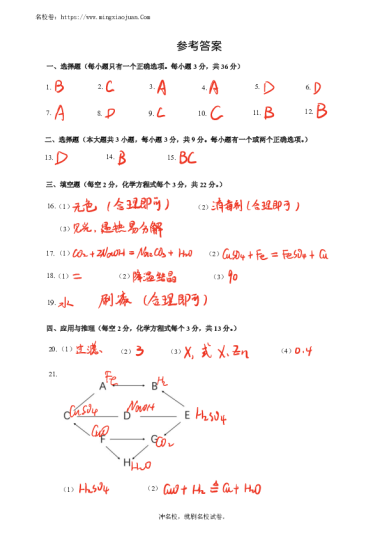 名校卷：https://www.mingxiaojuan.Com
参考答案
一、选择题（每小题只有一个正确选项。每小题 3 分，共 36 分）
1. B 2. C 3. A 4. A 5. D 6. D
7. A 8. D 9. C 10. C 11. B 12. B
二、选择题（本大题共 3 小题，每小题 3 分，共 9 分。每小题有一个或两个正确选项。）
13. D 14. B 15. BC
三、填空题（每空 2 分，化学方程式每个 3 分，共 22 分。）
16.（1）无色（合理即可）（2）消毒剂（合理即可）
（3）见光、遇热易分解
17.（1）CO₂ + 2NaOH = Na₂CO₃ + H₂O （2）CuSO₄ + Fe = FeSO₄ + Cu
18.（1）二 （2）降温结晶 （3）90
19. 水 刷漆（合理即可）
四、应用与推理（每空 2 分，化学方程式每个 3 分，共 13 分。）
20.（1）过滤、（2）3 （3）X、或 X、Zn （4）0.4
21.
A Fe B H₂
C CuSO₄ D NaOH E H₂SO₄
F CuO G CO₂
H H₂O
（1）H₂SO₄ （2）CuO + H₂ ≜ Cu + H₂O
冲名校，就刷名校试卷。